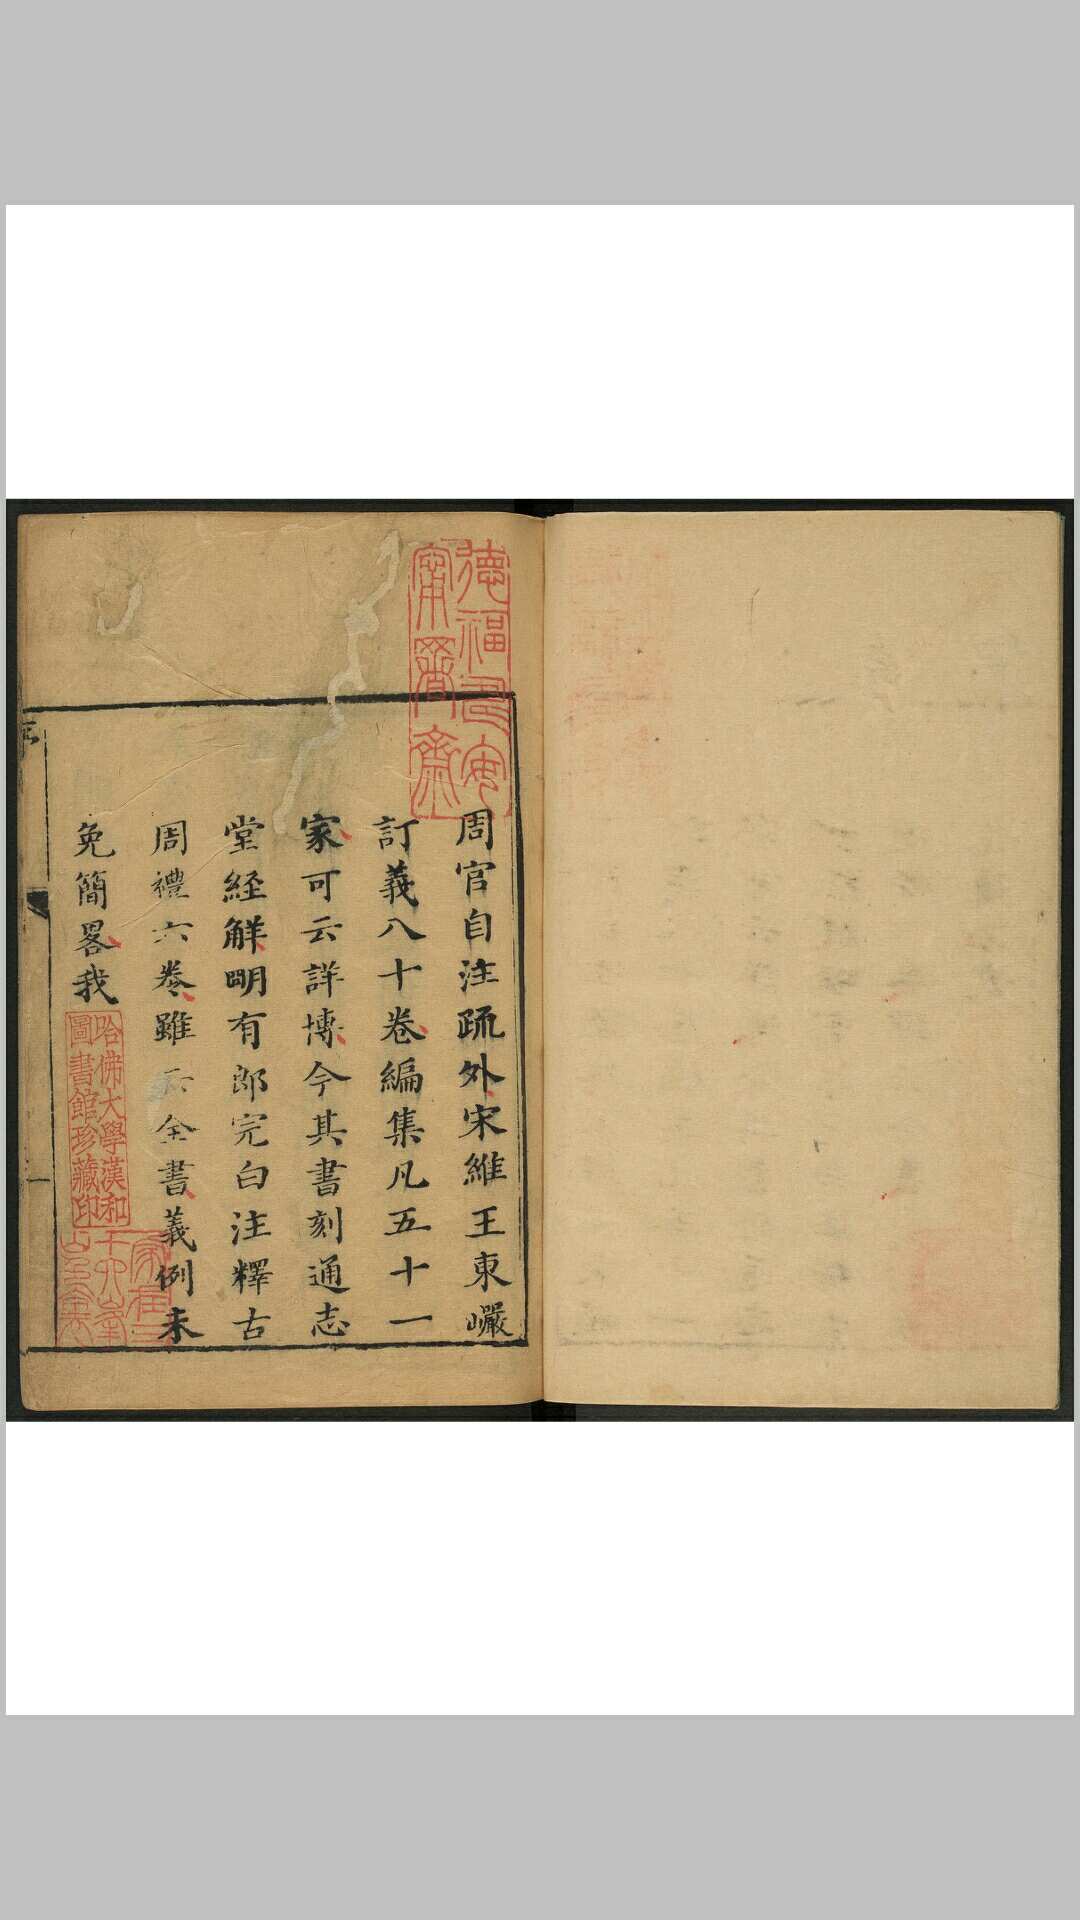 周官自注疏外宋維王東巖
訂義八十卷編集凡五十一
家可云詳博今其書刻通志
堂経解明有郎完白注釋古
周禮六卷雖云全書義例未
免簡畧我
哈佛大學漢和
圖書館珍藏印
序
一